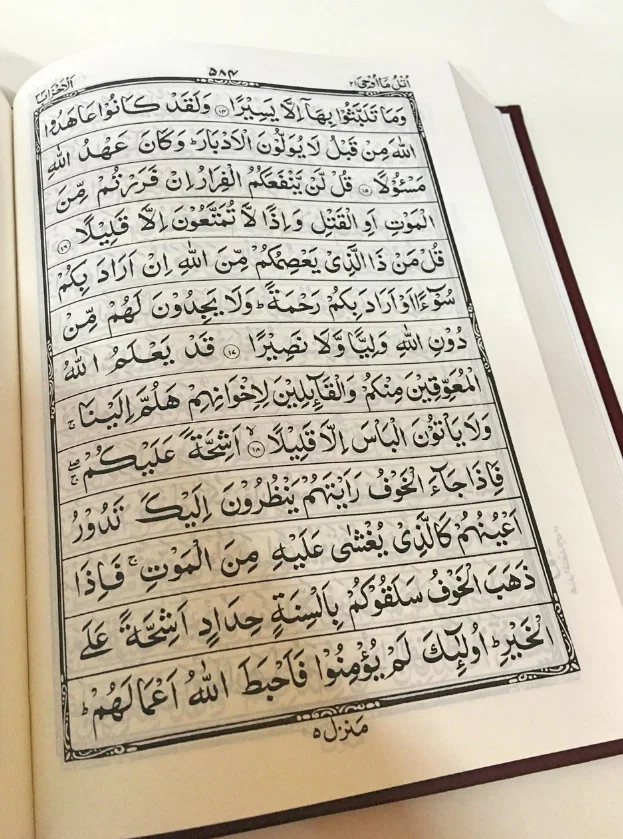 اُتْلُ مَاۤ اُوْحِیَ ۲۱
۵۸۴
الْاَحْزَاب
وَمَا تَلَبَّثُوْا بِهَاۤ اِلَّا يَسِيْرًا ۝۱۴ وَلَقَدْ كَانُوْا عَاهَدُوا
اللّٰهَ مِنْ قَبْلُ لَا يُوَلُّوْنَ الْاَدْبَارَ ؕ وَكَانَ عَهْدُ اللّٰهِ
مَسْـُٔوْلًا ۝۱۵ قُلْ لَّنْ يَّنْفَعَكُمُ الْفِرَارُ اِنْ فَرَرْتُمْ مِّنَ
الْمَوْتِ اَوِ الْقَتْلِ وَاِذًا لَّا تُمَتَّعُوْنَ اِلَّا قَلِيْلًا ۝۱۶
قُلْ مَنْ ذَا الَّذِيْ يَعْصِمُكُمْ مِّنَ اللّٰهِ اِنْ اَرَادَ بِكُمْ
سُوْٓءًا اَوْ اَرَادَ بِكُمْ رَحْمَةً ؕ وَلَا يَجِدُوْنَ لَهُمْ مِّنْ
دُوْنِ اللّٰهِ وَلِيًّا وَّلَا نَصِيْرًا ۝۱۷ قَدْ يَعْلَمُ اللّٰهُ
الْمُعَوِّقِيْنَ مِنْكُمْ وَالْقَآئِلِيْنَ لِاِخْوَانِهِمْ هَلُمَّ اِلَيْنَا ۚ
وَلَا يَاْتُوْنَ الْبَاْسَ اِلَّا قَلِيْلًا ۝۱۸ۙ اَشِحَّةً عَلَيْكُمْ ۖۚ
فَاِذَا جَآءَ الْخَوْفُ رَاَيْتَهُمْ يَنْظُرُوْنَ اِلَيْكَ تَدُوْرُ
اَعْيُنُهُمْ كَالَّذِيْ يُغْشٰى عَلَيْهِ مِنَ الْمَوْتِ ۚ فَاِذَا
ذَهَبَ الْخَوْفُ سَلَقُوْكُمْ بِاَلْسِنَةٍ حِدَادٍ اَشِحَّةً عَلَى
الْخَيْرِ ؕ اُولٰٓئِكَ لَمْ يُؤْمِنُوْا فَاَحْبَطَ اللّٰهُ اَعْمَالَهُمْ ؕ
مَنْزِل ۵